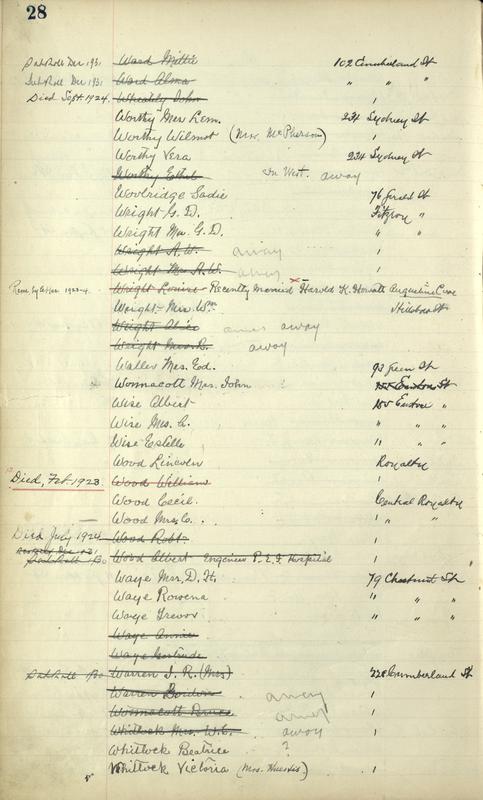 28
Ward Mittie 102 Cumberland St
Ward Alma " " "
Died Sept. 1924. Wheatly John
Worthy Mrs Lem. 234 Sydney St
Worthy Wilmot (Mrs. McPherson)
Worthy Vera 234 Sydney St
Worthy Ethel in West. away
Woolridge Sadie 76 St
Wright G. D. Fitzroy "
Wright Mrs. G. D. " "
Wright A. W. away
Wright Mrs. A. W. away
Rem. by letter 1923-4. Wright Louise Recently Married Harold K. Howatt
Wright Mrs. Wm Hillsboro St
Wright Alice away
Wright Mrs. R. away
Waller Mrs. Ed. 93 Green St
Wonnacott Mrs. John ? Euston St
Wise Albert Euston "
Wise Mrs. A. " " "
Wise Estelle " " "
Wood Lincoln Royalty
Died, Feb. 1923. Wood William
Wood Cecil. Central Royalty
Wood Mrs. C. " "
Died July 1924 Wood Robt.
Wood Albert Engineer P. E. I. Hospital
Waye Mrs. D. H. 79 Chestnut St
Waye Rowena " " "
Waye Trevor " " "
Waye Annie
Waye Gertrude
Warren J. R. (Mrs) 228 Cumberland St.
Warren away
Wonnacott away
Whitlock Mrs. W. C. away
Whitlock Beatrice ?
Whitlock Victoria (Mrs. Huestis)